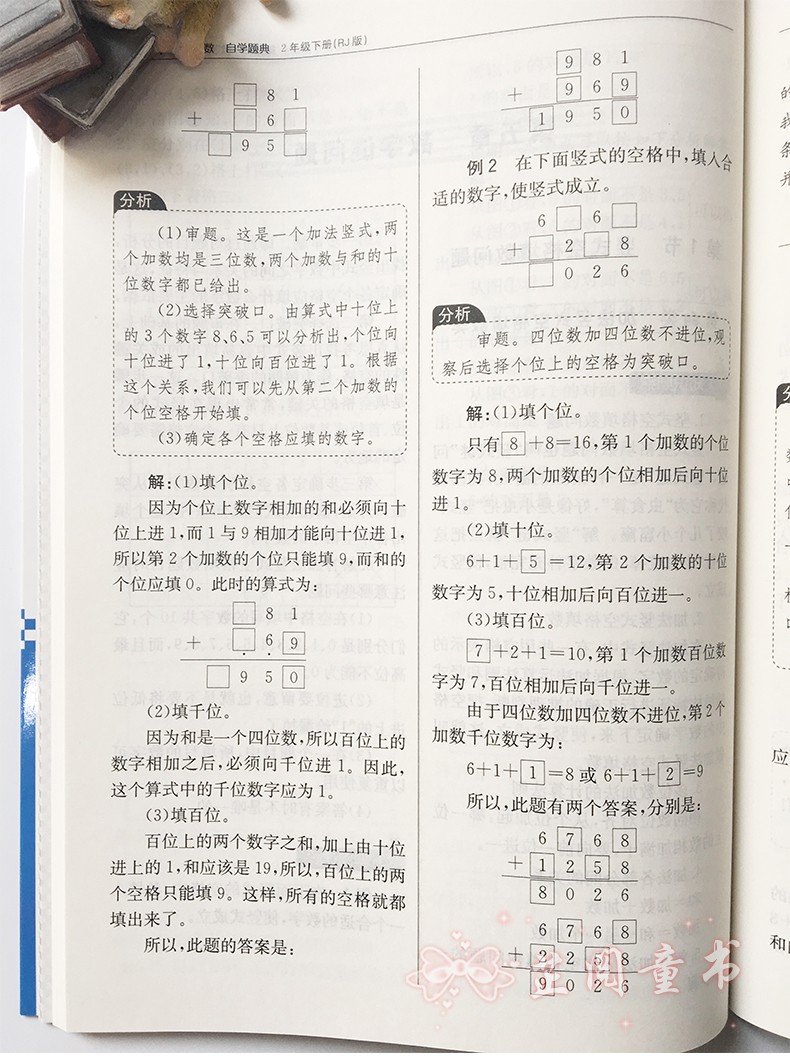 数 自学题典 2年级下册(RJ版)
□81
+ □6□
□95□
分析
(1)审题。这是一个加法竖式,两
个加数均是三位数,两个加数与和的十
位数字都已给出。
(2)选择突破口。由算式中十位上
的3个数字8、6、5可以分析出,个位向
十位进了1,十位向百位进了1。根据
这个关系,我们可以先从第二个加数的
个位空格开始填。
(3)确定各个空格应填的数字。
解:(1)填个位。
因为个位上数字相加的和必须向十
位上进1,而1与9相加才能向十位进1,
所以第2个加数的个位只能填9,而和的
个位应填0。此时的算式为:
□81
+ □69
□950
(2)填千位。
因为和是一个四位数,所以百位上的
数字相加之后,必须向千位进1。因此,
这个算式中的千位数字应为1。
(3)填百位。
百位上的两个数字之和,加上由十位
进上的1,和应该是19,所以,百位上的两
个空格只能填9。这样,所有的空格就都
填出来了。
所以,此题的答案是:
981
+ 969
1950
例2 在下面竖式的空格中,填入合
适的数字,使竖式成立。
6□6□
+ □2□8
□026
分析
审题。四位数加四位数不进位,观
察后选择个位上的空格为突破口。
解:(1)填个位。
只有8+8=16,第1个加数的个位
数字为8,两个加数的个位相加后向十位
进1。
(2)填十位。
6+1+5=12,第2个加数的十位
数字为5,十位相加后向百位进一。
(3)填百位。
7+2+1=10,第1个加数百位数
字为7,百位相加后向千位进一。
由于四位数加四位数不进位,第2个
加数千位数字为:
6+1+1=8或6+1+2=9
所以,此题有两个答案,分别是:
6768
+1258
8026
6768
+2258
9026
童书
应
和